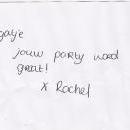 jouw party word
great!
x Rachel